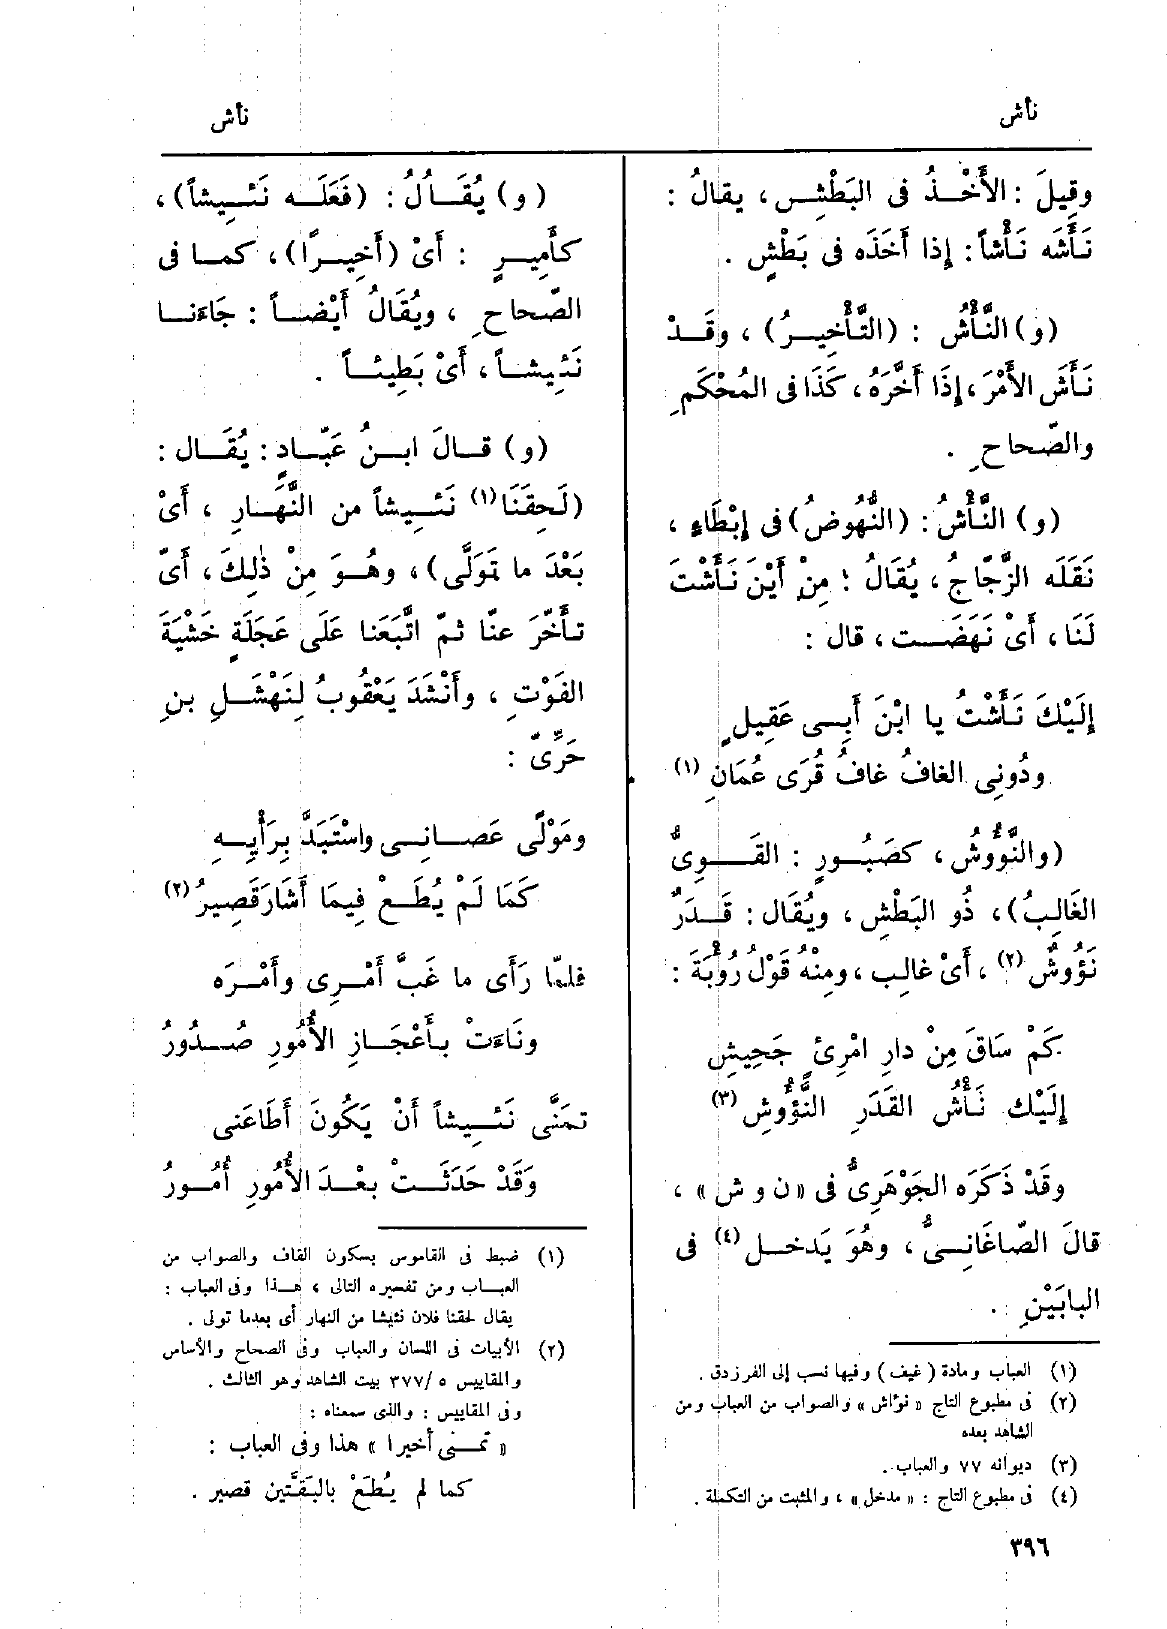 نأش
نأش
وقِيلَ : الأَخْذُ فى البَطْشِ ، يقالُ :
نَأَشَه نَأْشاً : إذا أَخَذَه فى بَطْشٍ .
(و) النَّأْشُ : (التَّأْخِيرُ) ، وقَدْ
نَأَشَ الأَمْرَ ، إِذَا أَخَّرَهُ ، كَذَا فى المُحْكَمِ
والصّحاحِ .
(و) النَّأْشُ : (النُّهُوضُ) فى إِبْطَاءٍ ،
نَقَلَه الزَّجّاجُ ، يُقَالُ : مِنْ أَيْنَ نَأَشْتَ
لَنَا ، أَىْ نَهَضْت ، قال :
إِلَيْكَ نَأَشْتُ يا ابْنَ أَبِى عَقِيلٍ
ودُونِى الغافُ غافُ قُرَى عُمَانِ (١)
(والنَّؤُوشُ ، كصَبُورٍ : القَوِىُّ
الغَالِبُ) ، ذُو البَطْشِ ، ويُقَال : قَدَرٌ
نَؤُوشٌ (٢) ، أَىْ غالِب ، ومِنْهُ قَوْلُ رُؤْبَةَ :
كَمْ سَاقَ مِنْ دارِ امْرِئٍ جَحِيشِ
إِلَيْك نَأْشُ القَدَرِ النَّؤُوشِ (٣)
وقَدْ ذَكَرَه الجَوْهَرِىُّ فى «ن و ش» ،
قالَ الصّاغَانِىُّ ، وهُوَ يَدخل (٤) فى
البابَيْنِ .
(١) العباب ومادة (غيف) وفيها نسب إلى الفرزدق .
(٢) فى مطبوع التاج « نؤاش » والصواب من العباب ومن
الشاهد بعده
(٣) ديوانه ٧٧ والعباب .
(٤) فى مطبوع التاج : « مدخل » ، والمثبت من التكملة .
(و) يُقَالُ : (فَعَلَه نَئِيشاً) ،
كأَمِيرٍ : أَىْ (أَخِيرًا) ، كما فى
الصّحاحِ ، ويُقَالُ أَيْضاً : جَاءَنا
نَئِيشاً ، أَىْ بَطِيئاً .
(و) قالَ ابنُ عَبّادٍ : يُقَال :
(لَحِقَنَا (١) نَئِيشاً من النَّهَارِ ، أَىْ
بَعْدَ ما تَوَلَّى) ، وهُوَ مِنْ ذٰلِكَ ، أَىْ
تأَخَّرَ عنّا ثمّ اتَّبَعَنا عَلَى عَجَلَةٍ خَشْيَةَ
الفَوْتِ ، وأَنْشَدَ يَعْقُوبُ لِنَهْشَلِ بنِ
حَرِّىّ :
ومَوْلًى عَصانِى واسْتَبَدَّ بِرَأْيِهِ
كَمَا لَمْ يُطَعْ فِيمَا أَشَارَ قَصِيرُ (٢)
فلمّا رَأَى ما غَبَّ أَمْرِى وأَمْرَه
ونَاءَتْ بأَعْجَازِ الأُمُورِ صُدُورُ
تمَنَّى نَئِيشاً أَنْ يَكُونَ أَطَاعَنى
وَقَدْ حَدَثَتْ بعْدَ الأُمُورِ أُمُورُ
(١) ضبط فى القاموس بسكون القاف والصواب من
العباب ومن تفسيره التالى ، هذا وفى العباب :
يقال لحقنا فلان نئيشا من النهار أى بعدما تولى .
(٢) الأبيات فى اللسان والعباب وفى الصحاح والأساس
والمقاييس ٥ /٣٧٧ بيت الشاهد وهو الثالث .
وفى المقاييس : والذى سمعناه :
« تمنى أخيرا » هذا وفى العباب :
كما لم يُطَعْ بالبَقَّتين قصير .
٣٩٦